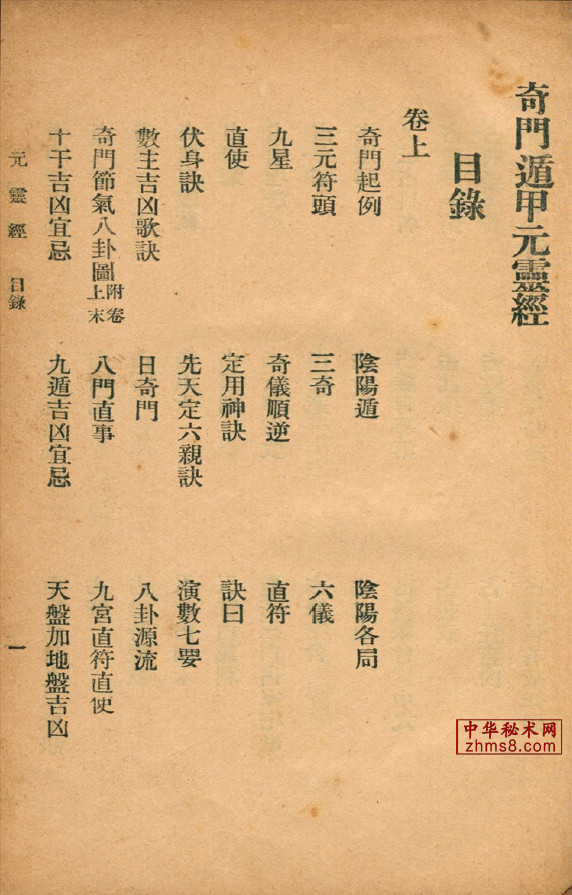 奇門遁甲元靈經
目錄
卷上
奇門起例 陰陽遁 陰陽各局
三元符頭 三奇 六儀
九星 奇儀順逆 直符
直使 定用神訣 訣曰
伏身訣 先天定六親訣 演數七要
數主吉凶歌訣 日奇門 八卦源流
奇門節氣八卦圖附卷上末 八門直事 九宮直符直使
十干吉凶宜忌 九遁吉凶宜忌 天盤加地盤吉凶
元靈經 目錄 一
中华秘术网
zhms8.com